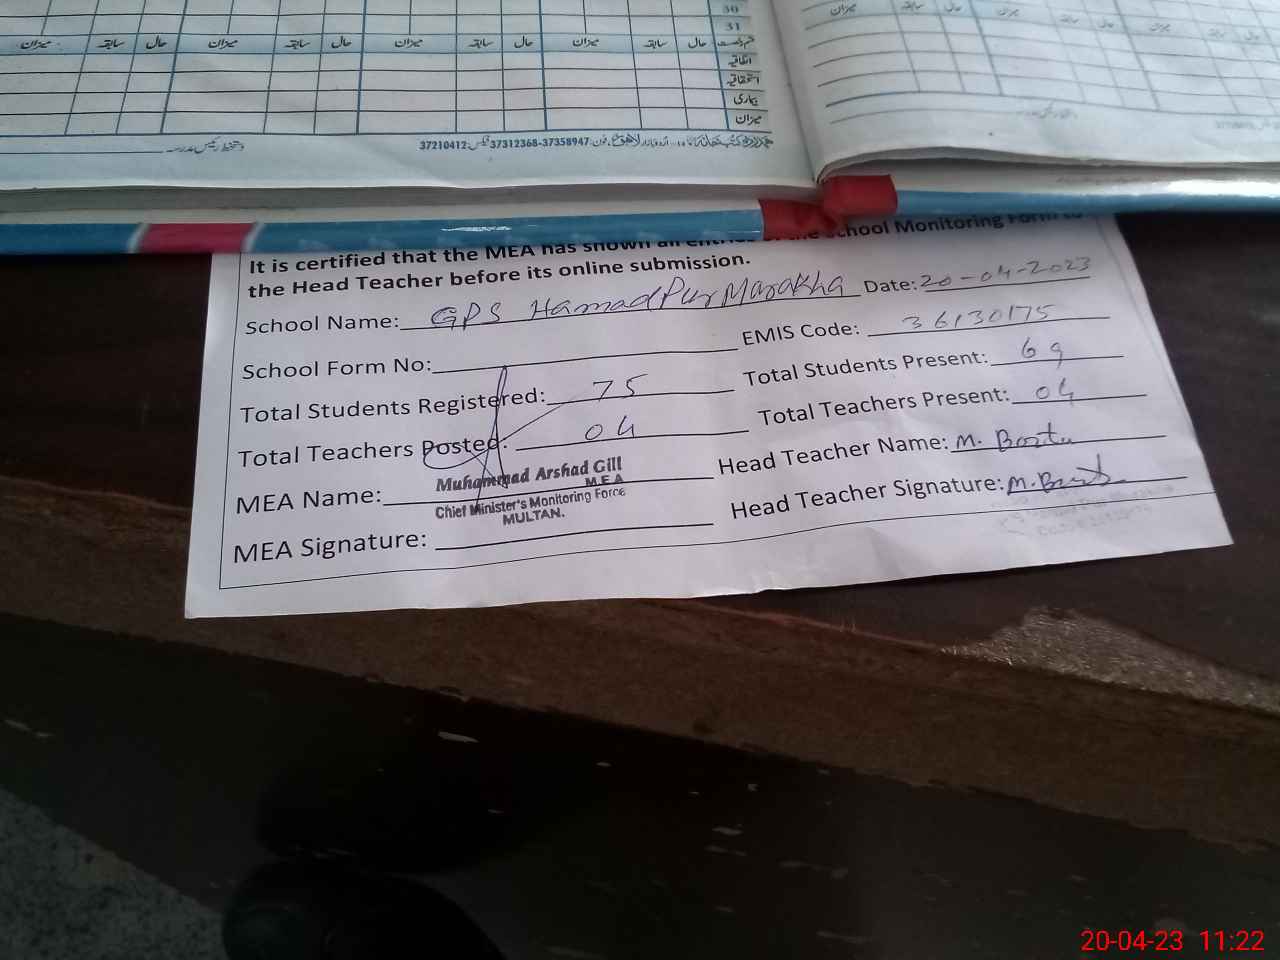 30
31
میزان سابقہ حال میزان سابقہ حال میزان سابقہ حال میزان سابقہ حال
اتفاقیہ
استحقاقیہ
بیماری
میزان
دستخط رئیس مدرسہ
لاہور فون: 37312368-37358947 فیکس: 37210412
میزان سابقہ حال میزان سابقہ حال
It is certified that the MEA has shown all entries of the School Monitoring Form to
the Head Teacher before its online submission.
School Name: GPS HamadPur Marakha Date: 20-04-2023
School Form No: EMIS Code: 36130175
Total Students Registered: 75 Total Students Present: 69
Total Teachers Posted: 04 Total Teachers Present: 04
MEA Name: Head Teacher Name: M.
Muhammad Arshad Gill
M.E.A
Chief Minister's Monitoring Force
MULTAN.
MEA Signature: Head Teacher Signature: M.
20-04-23 11:22